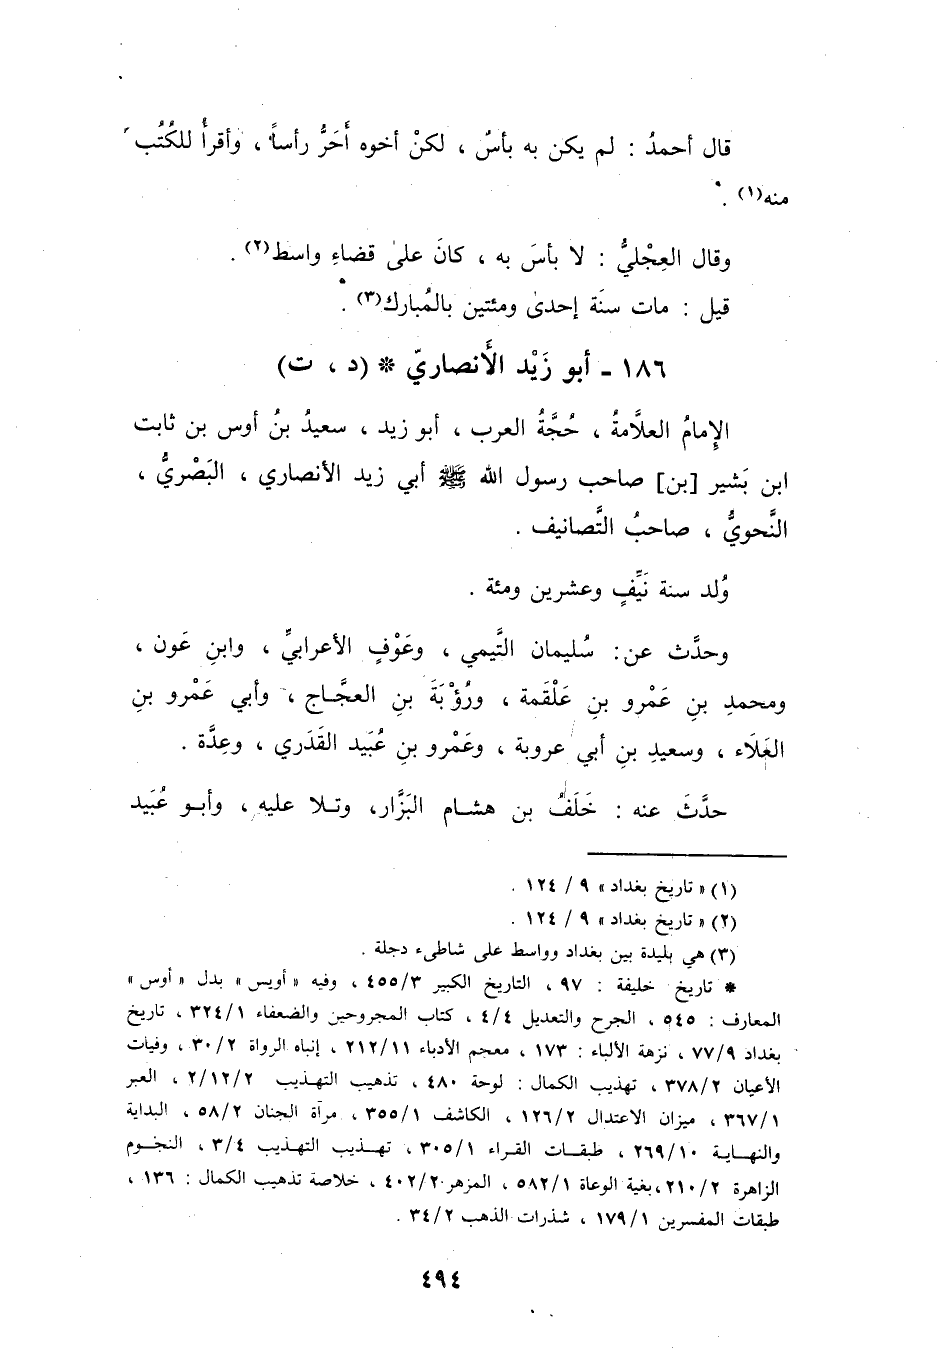 قال أحمدُ : لم يكن به بأسٌ ، لكنْ أخوه أَحَرُّ رأساً ، وأقرأُ للكُتُب
منه(١) .
وقال العِجْليُّ : لا بأسَ به ، كانَ علىٰ قضاءِ واسط(٢) .
قيل : مات سنَة إحدىٰ ومئتين بالمُبارك(٣) .
١٨٦ ـ أبو زَيْد الأَنصاريّ * (د ، ت)
الإِمامُ العلاَّمةُ ، حُجَّةُ العرب ، أبو زيد ، سعيدُ بنُ أوس بن ثابت
ابن بَشير [بن] صاحب رسول الله ﷺ أبي زيد الأنصاري ، البَصْريُّ ،
النَّحويُّ ، صاحبُ التَّصانيف .
وُلد سنة نَيِّفٍ وعشرين ومئة .
وحدَّث عن: سُليمان التَّيمي ، وعَوْفٍ الأعرابيِّ ، وابنِ عَون ،
ومحمدِ بنِ عَمْرو بنِ عَلْقمة ، ورُؤْبَةَ بنِ العجَّاج ، وأبي عَمْرو بنِ
العَلَاء ، وسعيدِ بنِ أبي عروبة ، وعَمْرو بنِ عُبَيد القَدَري ، وعِدَّة .
حدَّثَ عنه : خَلَفُ بن هشام البَزَّار، وتلا عليه ، وأبو عُبَيد
(١) « تاريخ بغداد » ٩ / ١٢٤ .
(٢) « تاريخ بغداد » ٩ / ١٢٤ .
(٣) هي بليدة بين بغداد وواسط على شاطىء دجلة .
* تاريخ خليفة : ٩٧ ، التاريخ الكبير ٤٥٥/٣ ، وفيه « أويس » بدل « أوس »
المعارف : ٥٤٥ ، الجرح والتعديل ٤/٤ ، كتاب المجروحين والضعفاء ٣٢٤/١ ، تاريخ
بغداد ٧٧/٩ ، نزهة الألباء : ١٧٣ ، معجم الأدباء ٢١٢/١١ ، إنباه الرواة ٣٠/٢ ، وفيات
الأعيان ٣٧٨/٢ ، تهذيب الكمال : لوحة ٤٨٠ ، تذهيب التهذيب ٢/١٢/٢ ، العبر
٣٦٧/١ ، ميزان الاعتدال ١٢٦/٢ ، الكاشف ٣٥٥/١ ، مرآة الجنان ٥٨/٢ ، البداية
والنهاية ٢٦٩/١٠ ، طبقات القراء ٣٠٥/١ ، تهذيب التهذيب ٣/٤ ، النجوم
الزاهرة ٢١٠/٢ ،بغية الوعاة ٥٨٢/١ ، المزهر ٤٠٢/٢ ، خلاصة تذهيب الكمال : ١٣٦ ،
طبقات المفسرين ١٧٩/١ ، شذرات الذهب ٣٤/٢ .
٤٩٤